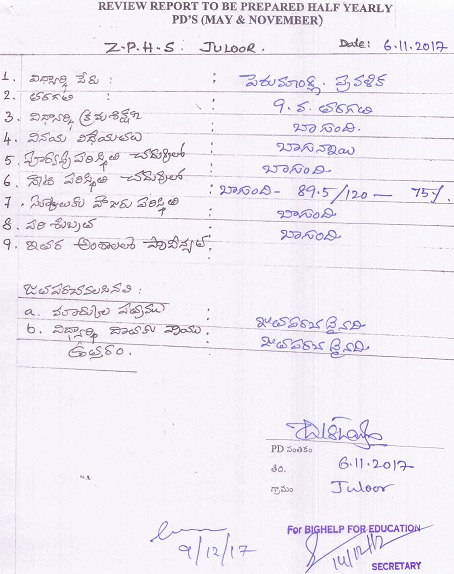 REVIEW REPORT TO BE PREPARED HALF YEARLY
PD'S (MAY & NOVEMBER)
Z-P-H-S: JULOOR. Date: 6.11.2017
1. విద్యార్థి పేరు : : పెరుమాండ్ల ప్రవళిక
2. తరగతి : 9. వ. తరగతి
3. విద్యార్థి క్రమశిక్షణ : బాగుంది.
4. వినయ విధేయతలు : బాగున్నాయి
5. పరిస్థితి చదువులో : బాగుంది
6. పరిస్థితి చదువులో : బాగుంది - 89.5/120 — 75%.
7. హాజరు పరిస్థితి : బాగుంది
8. పరిశుభ్రత : బాగుంది
9. ఇతర అంశాలలో :
జతపరచవలసినవి:
a. మార్కుల పత్రము : జతపరచడైనది
b. విద్యార్థి వ్రాయు : జతపరచడైనది
ఉత్తరం.
PD సంతకం
తేది. 6.11.2017
గ్రామం Juloor
9/12/17
For BIGHELP FOR EDUCATION
14/12/17
SECRETARY